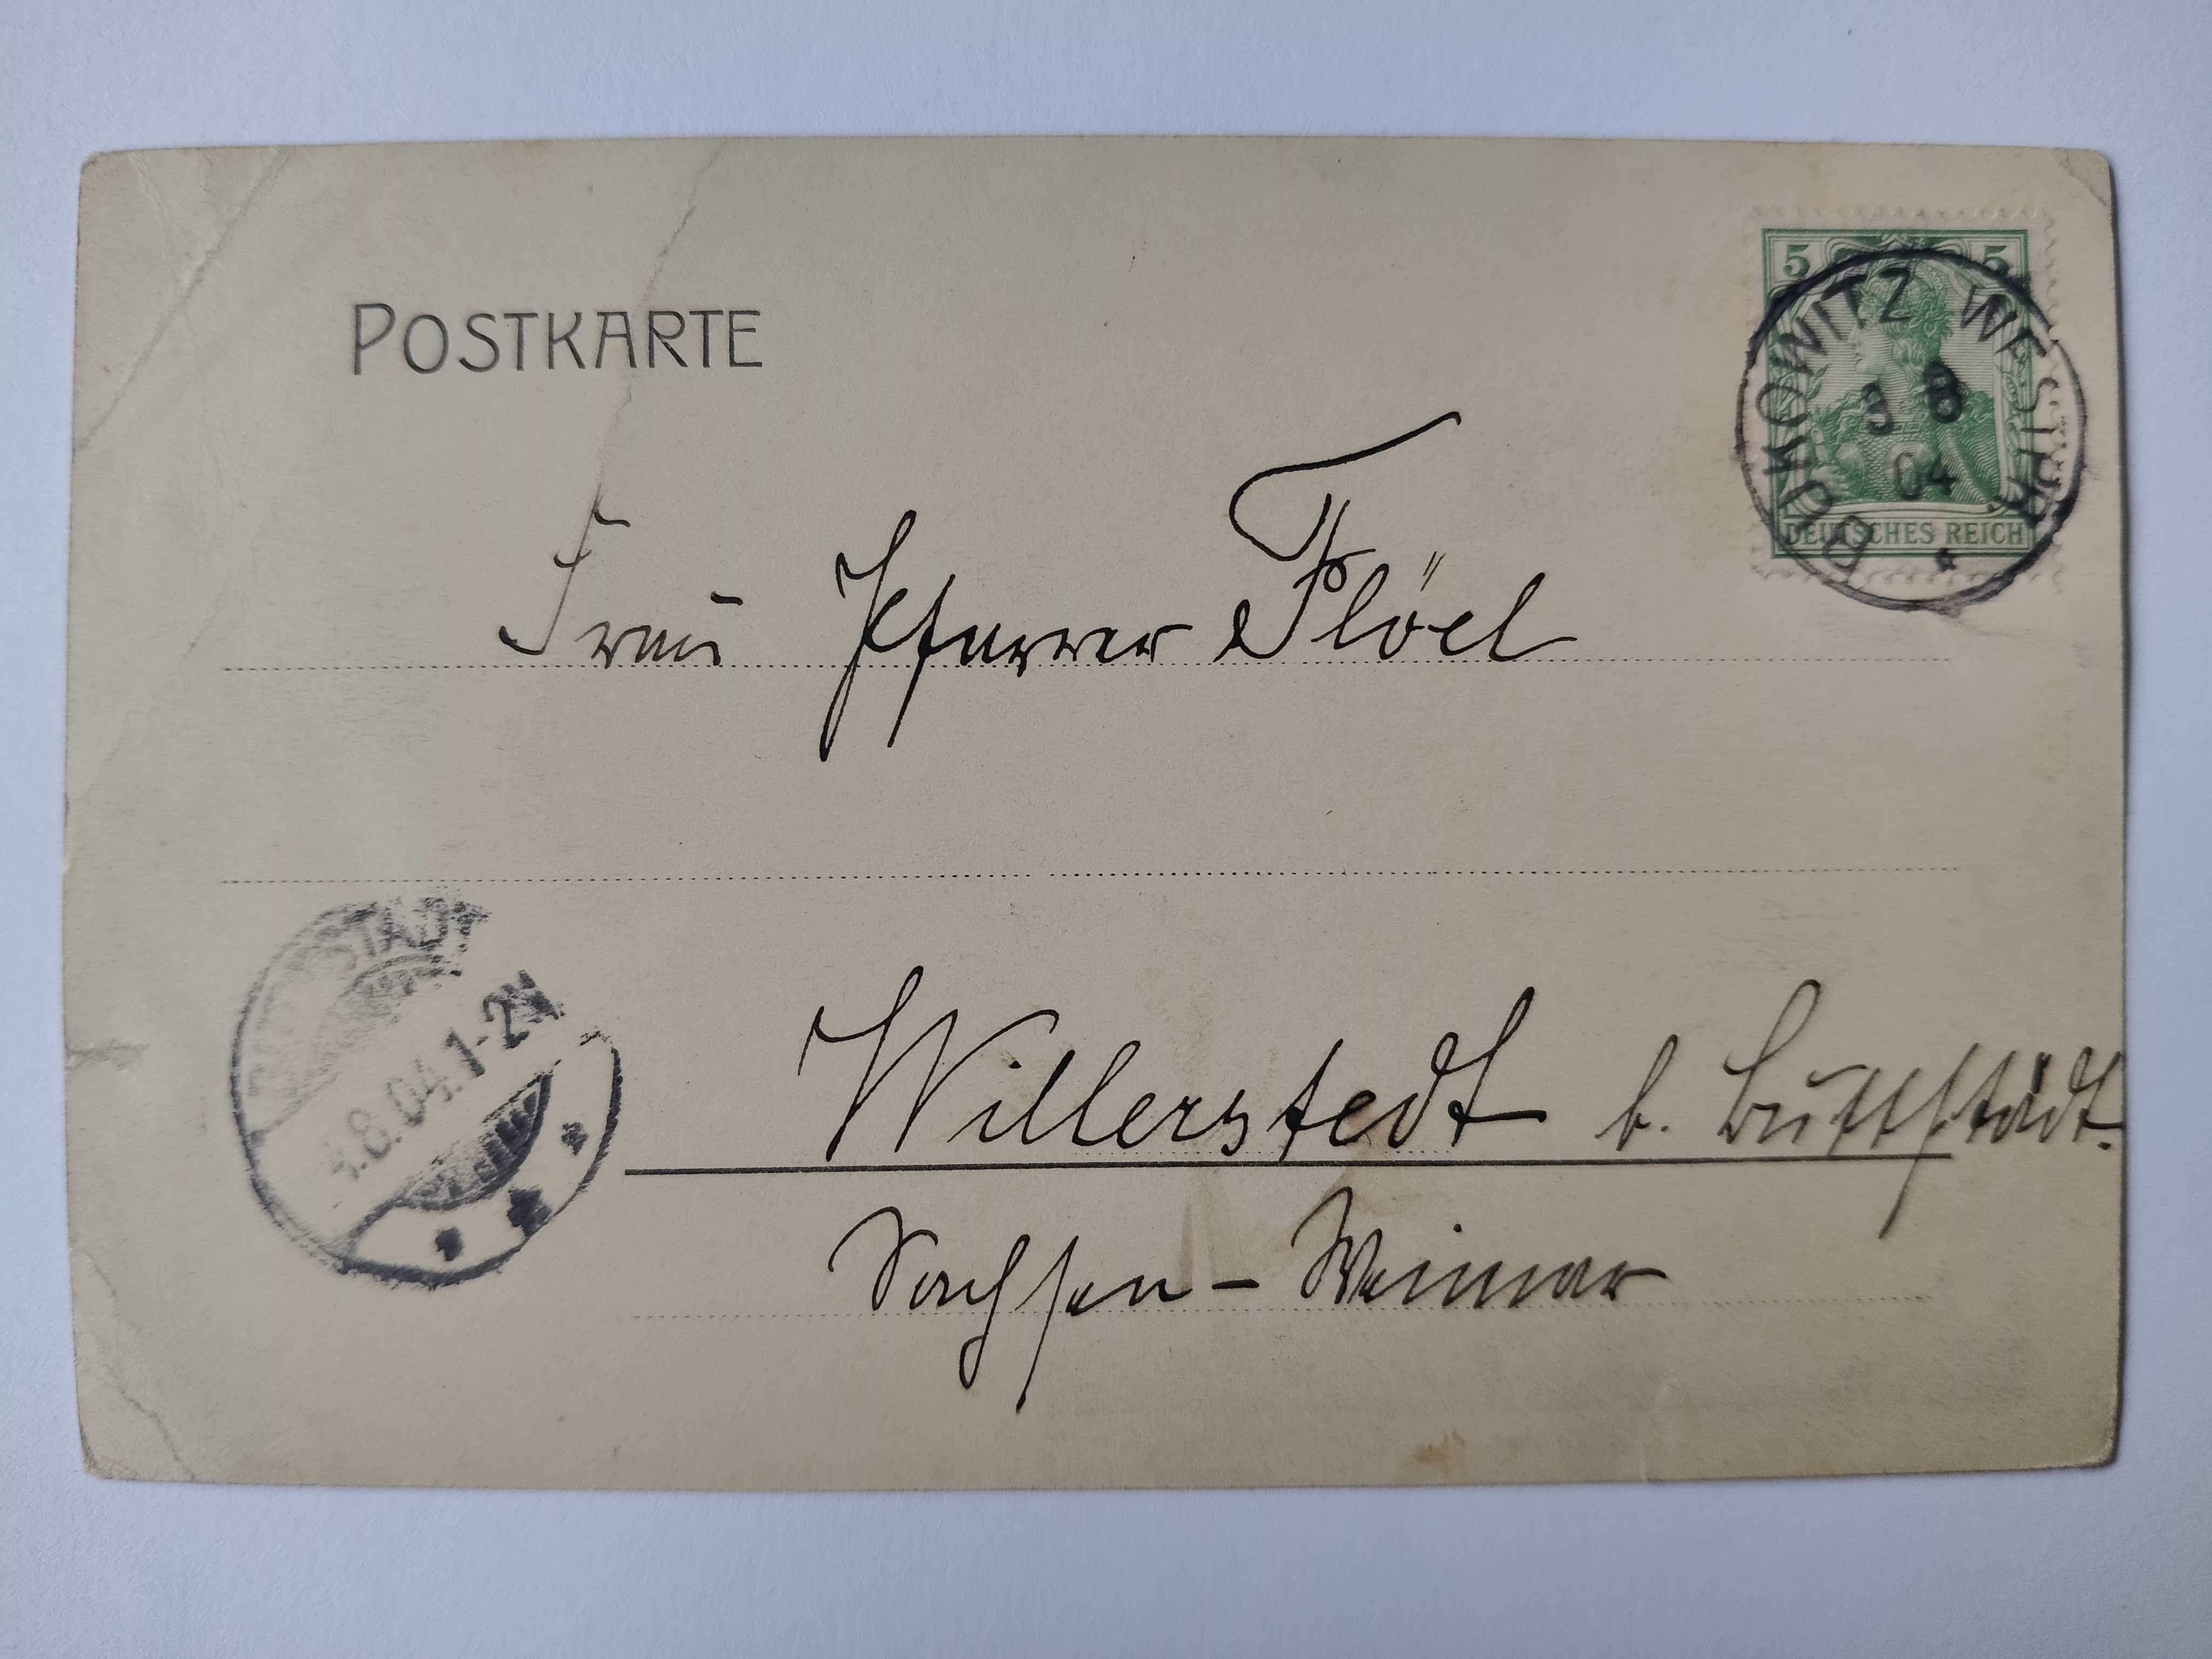 POSTKARTE
5 5
BUKOWITZ WESTPR
3 8
04
DEUTSCHES REICH
Frau Pfarrer Flöel
BUTTSTÄDT
8.04.1-2N
Willerstedt b. Buttstädt.
Sachsen-Weimar